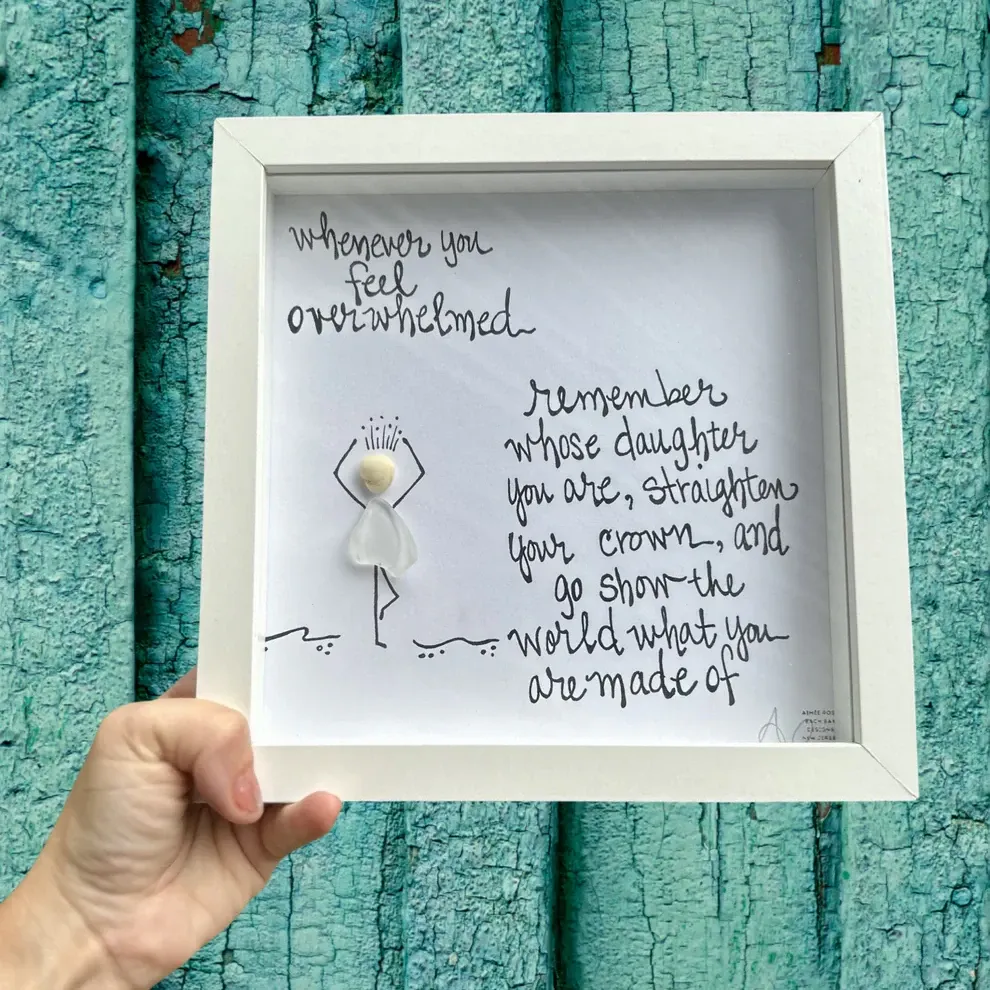 whenever you
feel
overwhelmed
remember
whose daughter
you are, straighten
your crown, and
go show the
world what you
are made of
DESIGNS